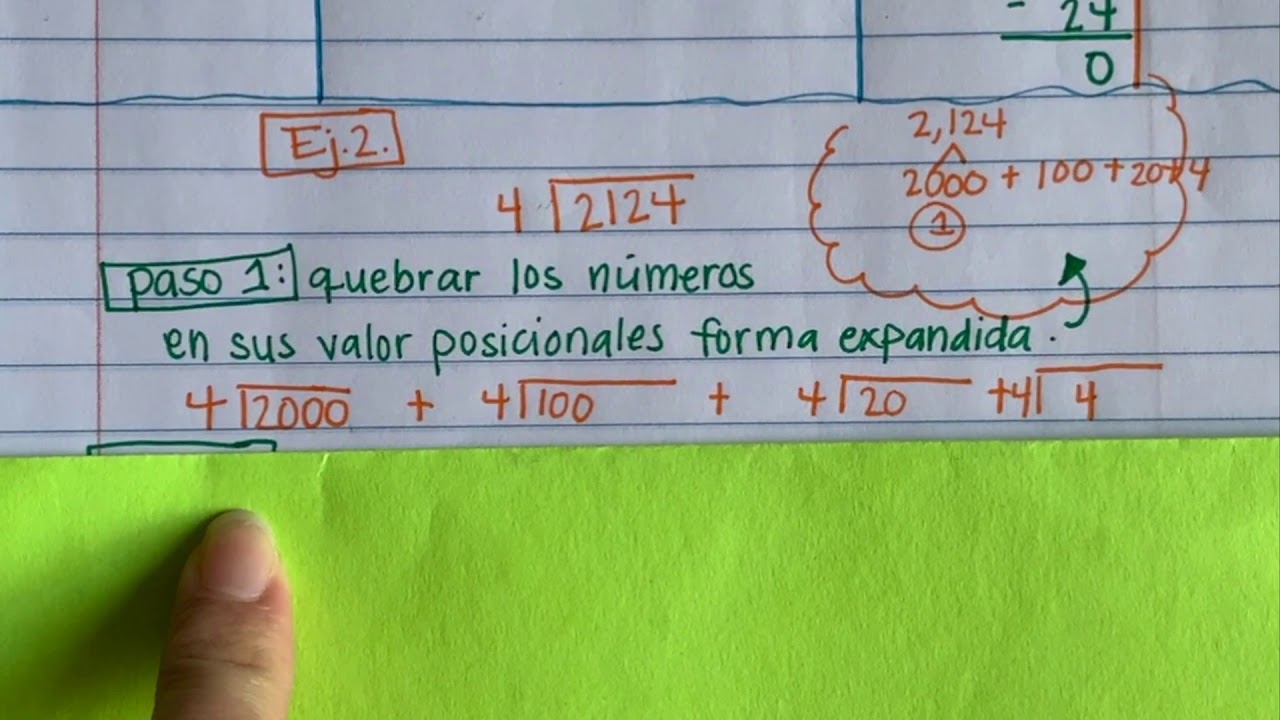 - 24
0
Ej.2.
2,124
2000 + 100 + 20+4
1
4 2124
paso 1: quebrar los números
en sus valor posicionales forma expandida.
4 2000 + 4 100 + 4 20 +4 4